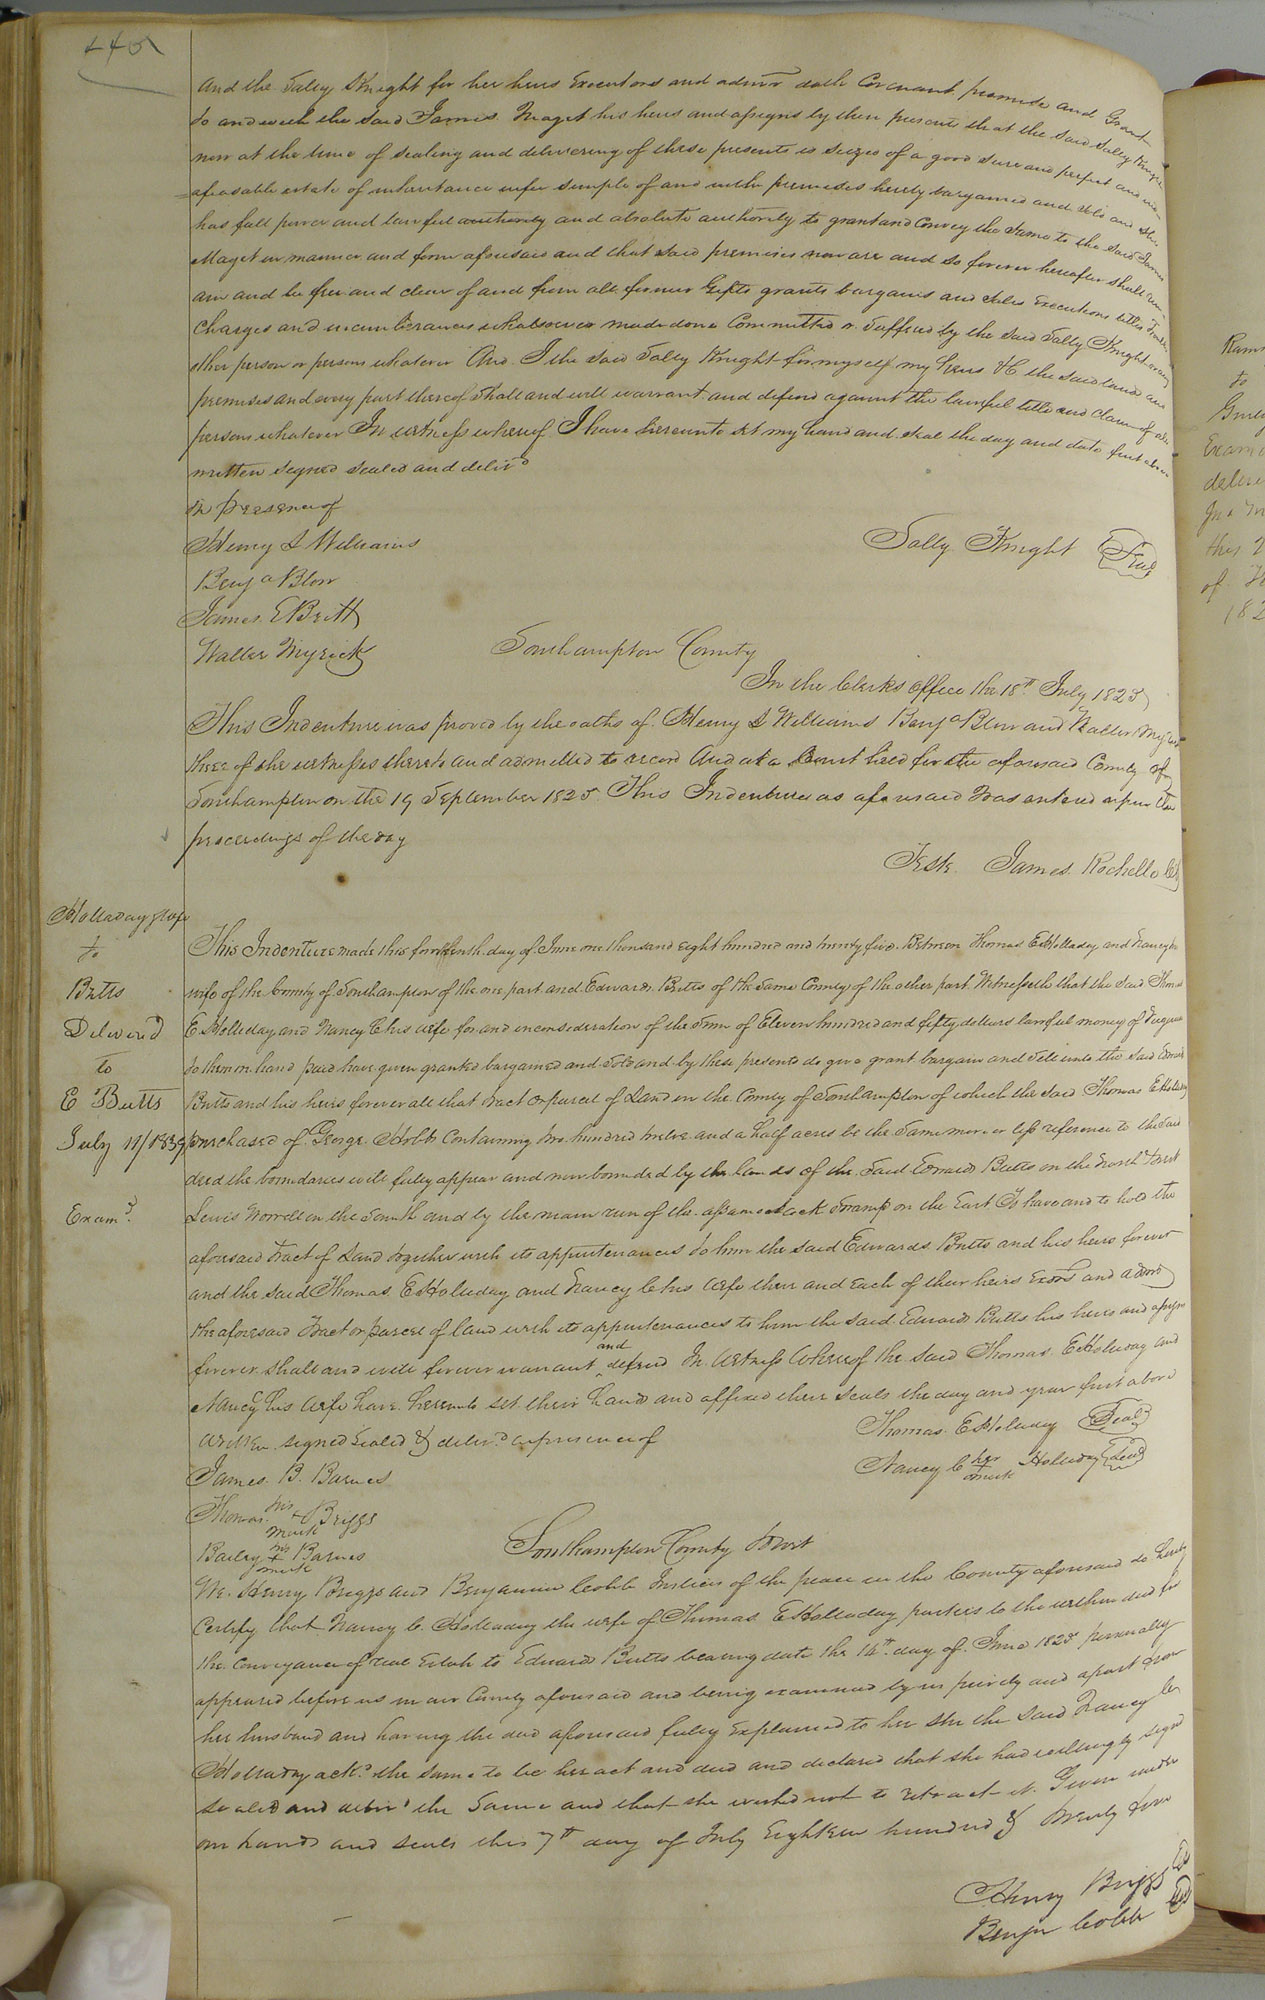 and the Sally Knight for her heirs Executors and admrs doth Covenant promise and Grant
to and with the said James Maget his heirs and assigns by these presents that the said Sally Knight
now at the time of sealing and delivering of these presents is seized of a good sure and perfect and
afeasable estate of inheritance in fee simple of and in the premises hereby bargained and sold and she
has full power and lawful authority and absolute authority to grant and Convey the same to the said James
Maget in manner and form aforesaid and that said premises now are and so forever hereafter shall
are and be free and clear of and from all former Gifts grants bargains and sales Executions titles
Charges and incumbrances whatsoever made done Committed or Suffered by the said Sally Knight or any
other person or persons whatever And I the said Sally Knight for myself my heirs &C the said land and
premises and every part thereof shall and will warrant and defend against the lawful title and claim of all
persons whatever In witness whereof I have hereunto set my hand and seal the day and date first above
written signed sealed and delivd
in presence of
Henry S Williams
Sally Knight Seal
Benja Blow
James E Britt
Walter Myrick
Southampton County
In the Clerks office the 18th July 1825
This Indenture was proved by the oaths of Henry S Williams Benja Blow and Walter Myrick
three of the witnesses thereto and admitted to record And at a Court held for the aforesaid County of
Southampton on the 19 September 1825 This Indenture as aforesaid was entered upon the
proceedings of the day
Teste James Rochelle
Holladay & wife
to
Butts
Delivered
to
E Butts
July 11/1839
Examd
This Indenture made this fourteenth day of June one thousand eight hundred and twenty five Between Thomas E Holladay and Nancy his
wife of the County of Southampton of the one part and Edward Butts of the same County of the other part Witnesseth that the said Thomas
E Holladay and Nancy C his wife for and in consideration of the sum of Eleven hundred and fifty dollars lawful money of Virginia
to them in hand paid have given granted bargained and sold and by these presents do give grant bargain and sell unto the said Edward
Butts and his heirs forever all that tract or parcel of Land in the County of Southampton of which the said Thomas E Holladay
purchased of George Hobbs Containing two hundred twelve and a half acres be the same more or less reference to the said
deed the boundaries will fully appear and now bounded by the lands of the said Edward Butts on the North & West
Lewis Worrell on the South and by the main run of the assamoosack Swamp on the East To have and to hold the
aforesaid Tract of Land together with its appurtenances to him the said Edwards Butts and his heirs forever
and the said Thomas E Holladay and Nancy C his wife their and Each of their heirs Exors and admrs
the aforesaid Tract or parcel of land with its appurtenances to him the said Edward Butts his heirs and assigns
forever shall and will forever warrant and defend In witness Whereof the said Thomas E Holladay and
Nancy C his wife have hereunto set their hand and affixed their seals the day and year first above
written signed sealed & delivd in presence of
Thomas E Holladay Seal
James B. Barnes
Nancy C her + mark Holladay Seal
Thomas his + mark Briggs
Bailey his + mark Barnes
Southampton County towit
We Henry Briggs and Benjamin Cobb Justices of the peace in the County aforesaid do hereby
Certify that Nancy C. Holladay the wife of Thomas E Holladay parties to the within deed for
the Conveyance of real Estate to Edward Butts bearing date the 14th day of June 1825 personally
appeared before us in our County aforesaid and being examined by us privily and apart from
her husband and having the deed aforesaid fully Explained to her she the said Nancy C
Holladay ackd the same to be her act and deed and declared that she had willingly signed
sealed and delivd the same and that she wished not to retract it Given under
our hands and seals this 7th day of July Eighteen hundred & twenty five
Henry Briggs
Benja Cobb